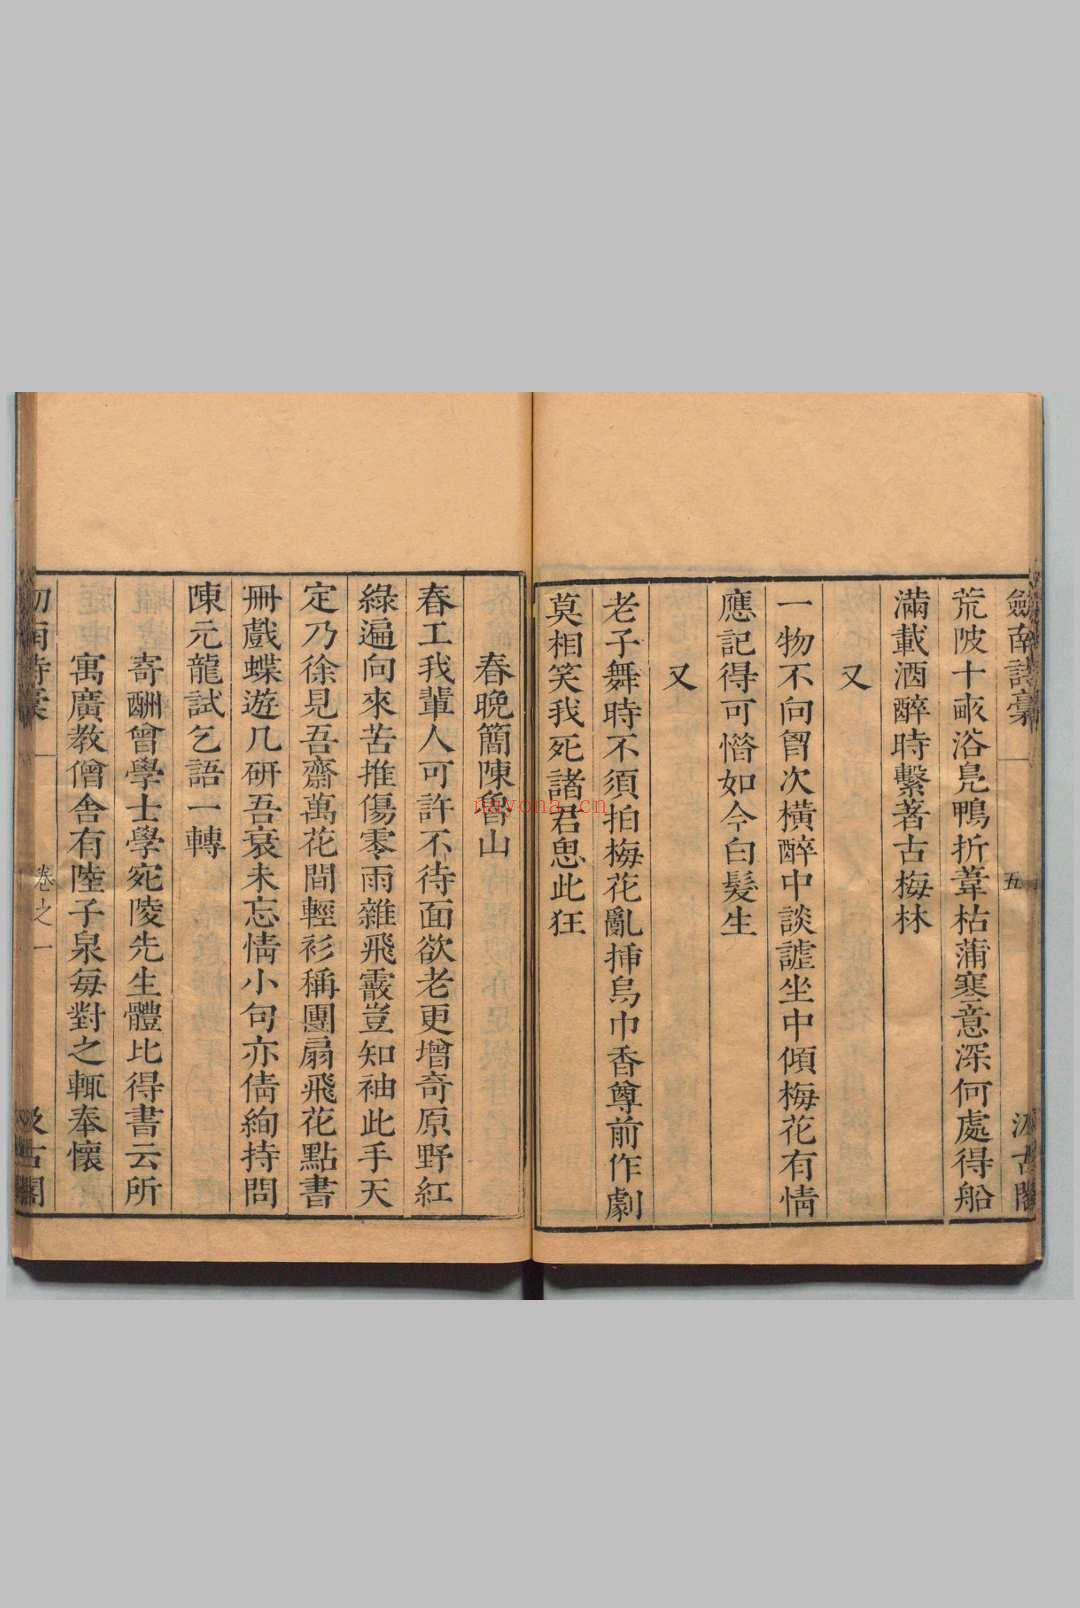 劒南詩稾
一
五
汲古閣
荒陂十畝浴鳬鴨折葦枯蒲寒意深何處得船
滿載酒醉時繫著古梅林
又
一物不向胷次橫醉中談謔坐中傾梅花有情
應記得可惜如今白髮生
又
老子舞時不須拍梅花亂揷烏巾香尊前作劇
莫相笑我死諸君思此狂
春晚簡陳魯山
春工我輩人可許不待面欲老更增奇原野紅
綠遍向來苦推傷零雨雜飛霰豈知袖此手天
定乃徐見吾齋萬花間輕衫稱團扇飛花點書
冊戲蝶遊几研吾衰未忘情小句亦倩絢持問
陳元龍試乞語一轉
寄酬曾學士學宛陵先生體比得書云所
寓廣教僧舍有陸子泉每對之輒奉懷
卷之一
汲古閣
nayona.cn